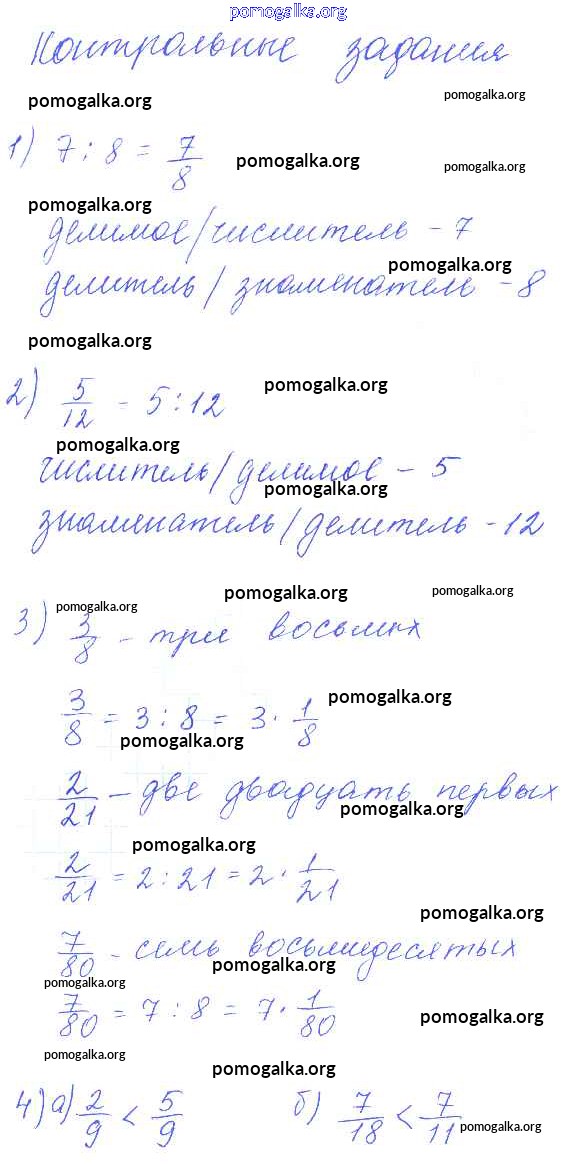 pomogalka.org
Контрольные задания
pomogalka.org pomogalka.org
1) 7 : 8 = 7/8
pomogalka.org pomogalka.org
pomogalka.org
делимое/числитель - 7
pomogalka.org
делитель/знаменатель - 8
pomogalka.org
2) 5/12 = 5 : 12
pomogalka.org
pomogalka.org
числитель/делимое - 5
pomogalka.org
знаменатель/делитель - 12
pomogalka.org pomogalka.org
pomogalka.org
3) 3/8 - три восьмых
3/8 = 3 : 8 = 3 · 1/8
pomogalka.org
pomogalka.org
2/21 - две двадцать первых
pomogalka.org
pomogalka.org
2/21 = 2 : 21 = 2 · 1/21
pomogalka.org
7/80 - семь восьмидесятых
pomogalka.org
pomogalka.org
7/80 = 7 : 8 = 7 · 1/80
pomogalka.org
pomogalka.org
pomogalka.org
4) а) 2/9 < 5/9 б) 7/18 < 7/11
pomogalka.org